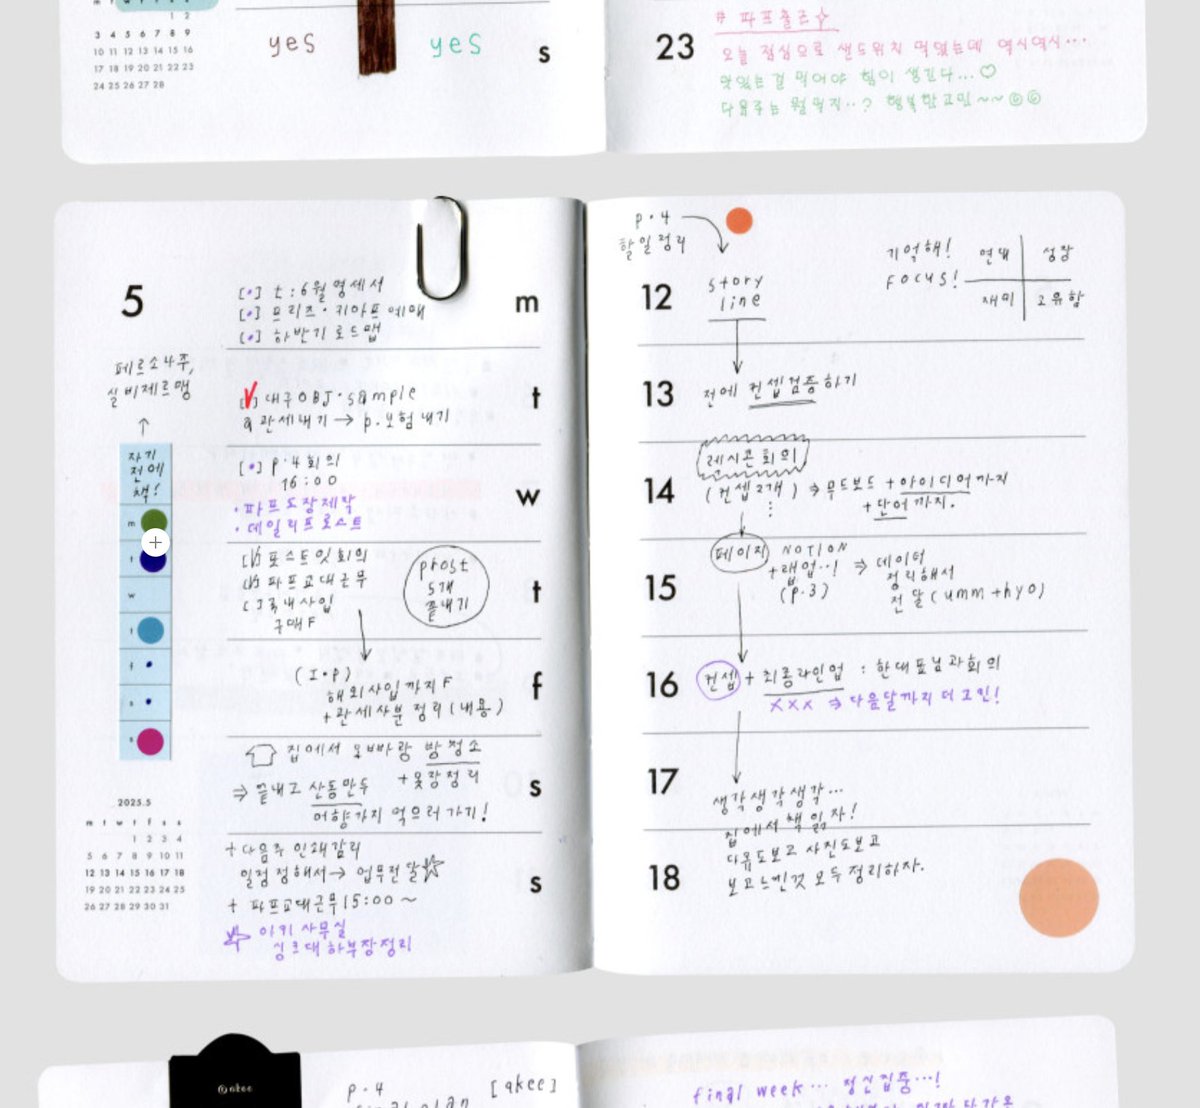 m t w t f s s
1 2
3 4 5 6 7 8 9
10 11 12 13 14 15 16
17 18 19 20 21 22 23
24 25 26 27 28
yes
yes
s
23
# 파프출근
오늘 점심으로 샌드위치 먹었는데 역시역시...
맛있는걸 먹어야 힘이 생긴다...♡
다음주는 뭘먹지..? 행복한고민~~
5
[•] t:6월 명세서
[•] 프리즈·키아프예매
[•] 하반기 로드맵
m
페르소나주,
실비제르맹
↑
자기
전에
책!
m
t
w
t
f
s
s
[✓] 대구OBJ·sample
& 관세내기 → p.보험내기
t
[•] p.4회의
16:00
·파프도장제작
·데일리프로스트
w
[✓] 포스트잇회의
[✓] 파프교대근무
[ ] 국내사입
구매F
prost
5개
끝내기
t
(I·P)
해외사입까지F
+관세사분정리(내용)
f
집에서 오빠랑 방청소
+옷장정리
⇒ 끝내고 산동만두
어향가지 먹으러가기!
s
+다음주 인쇄감리
일정정해서→ 업무전달☆
+ 파프교대근무15:00~
아키사무실
싱크대하부장정리
s
2025.5
m t w t f s s
1 2 3 4
5 6 7 8 9 10 11
12 13 14 15 16 17 18
19 20 21 22 23 24 25
26 27 28 29 30 31
p.4
할일정리
12
story
line
기억해!
FOCUS!
연대
성장
재미
고유함
13
전에 컨셉검증하기
14
레시콘회의
(컨셉2개) ⇒ 무드보드 +아이디어까지
+단어까지.
15
페이지
NOTION
+랩업..!
(p.3)
⇒ 데이터
정리해서
전달(umm+hyo)
16
컨셉 + 최종라인업 : 한대표님과회의
XXX ⇒ 다음달까지 더고민!
17
생각생각생각...
집에서책읽자!
18
다큐도보고 사진도보고
보고느낀것 모두정리하자.
@akee
p.4
[akee]
final week... 정신집중...!